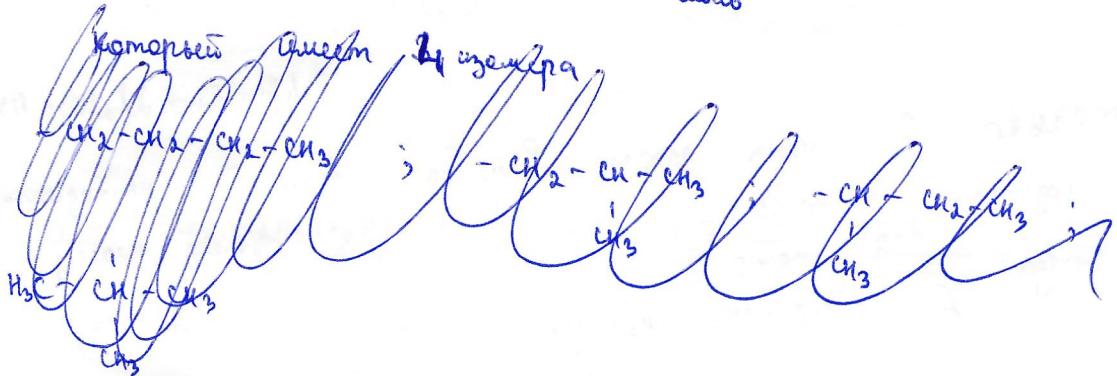 который имеет 4 изомера
-CH2-CH2-CH2-CH3 ; -CH2-CH-CH3 ; -CH-CH2-CH3 ;
CH3 CH3
H3C-CH-CH3
CH3